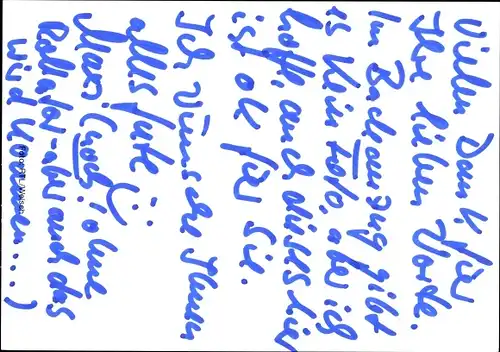 Vielen Dank für
Ihre lieben Worte.
Im Backanzug gibt
es kein Foto, aber ich
hoffe, auch dieses hier
ist ok für Sie.
Ich wünsche Ihnen
alles Gute :)
Marc (noch! ohne
Rollator - aber auch das
wird kommen...)